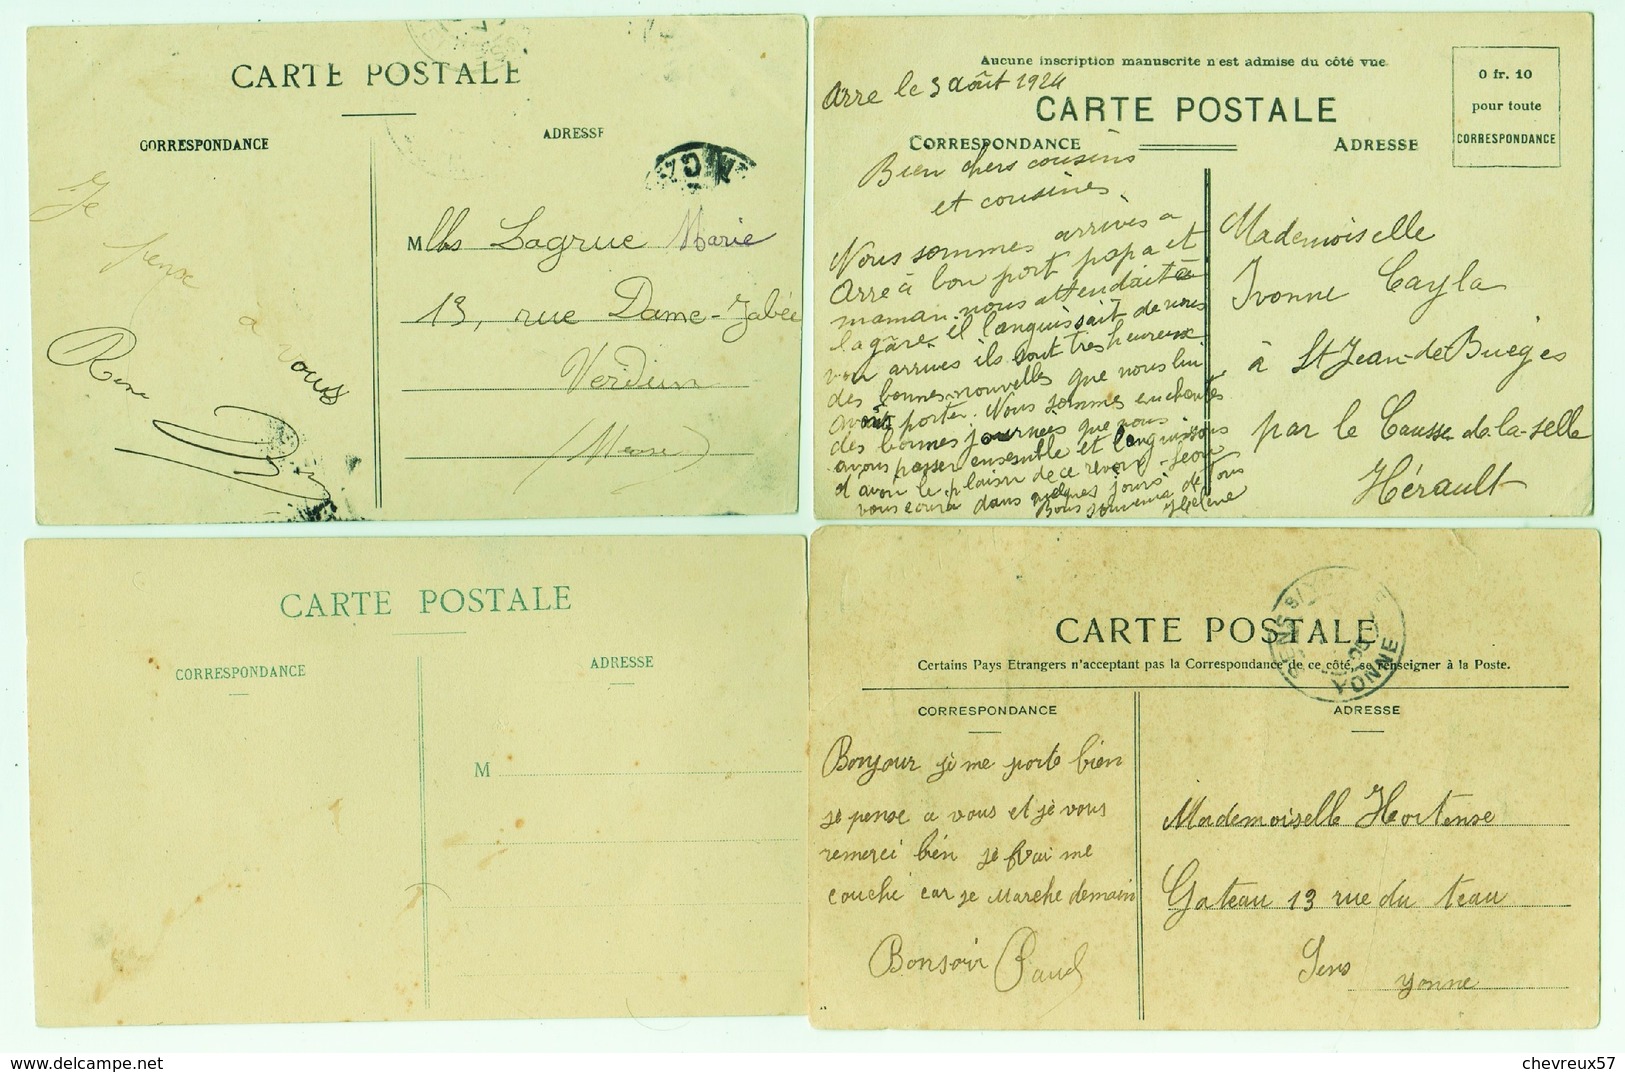 CARTE POSTALE
CORRESPONDANCE
ADRESSE
Je
pense
a
vous
Mlles Lagrue Marie
13, rue Dame-Zabée
Verdun
(Meuse)
Aucune inscription manuscrite n'est admise du côté vue.
Arre le 3 août 1924
CARTE POSTALE
CORRESPONDANCE
ADRESSE
0 fr. 10
pour toute
CORRESPONDANCE
Bien chers cousins
et cousines.
Nous sommes arrivés a
Arre à bon port papa et
maman nous attendait à
la gâre il languissait de nous
voir arrives ils sont très heureux
des bonnes nouvelles que nous lui
avont porter. Nous sommes enchantés
des bonnes journées que nous
avons passer ensemble et languissons
d'avoir le plaisir de ce revoir. Leon
vous ecrira dans quelques jours
Bons souvenirs de tous
Hélène
Mademoiselle
Ivonne Cayla
à St Jean-de-Buèges
par le Causse-de-la-selle
Hérault
CARTE POSTALE
CORRESPONDANCE
ADRESSE
M
CARTE POSTALE
Certains Pays Etrangers n'acceptant pas la Correspondance de ce côté, se renseigner à la Poste.
SENS S/Y
YONNE
CORRESPONDANCE
ADRESSE
Bonjour je me porte bien
je pense a vous et je vous
remerci bien je me
couché car je Marche demain
Bonsoir
Mademoiselle Hortense
Gateau 13 rue du Teau
Sens
Yonne
http://www.delcampe.net
chevreux57